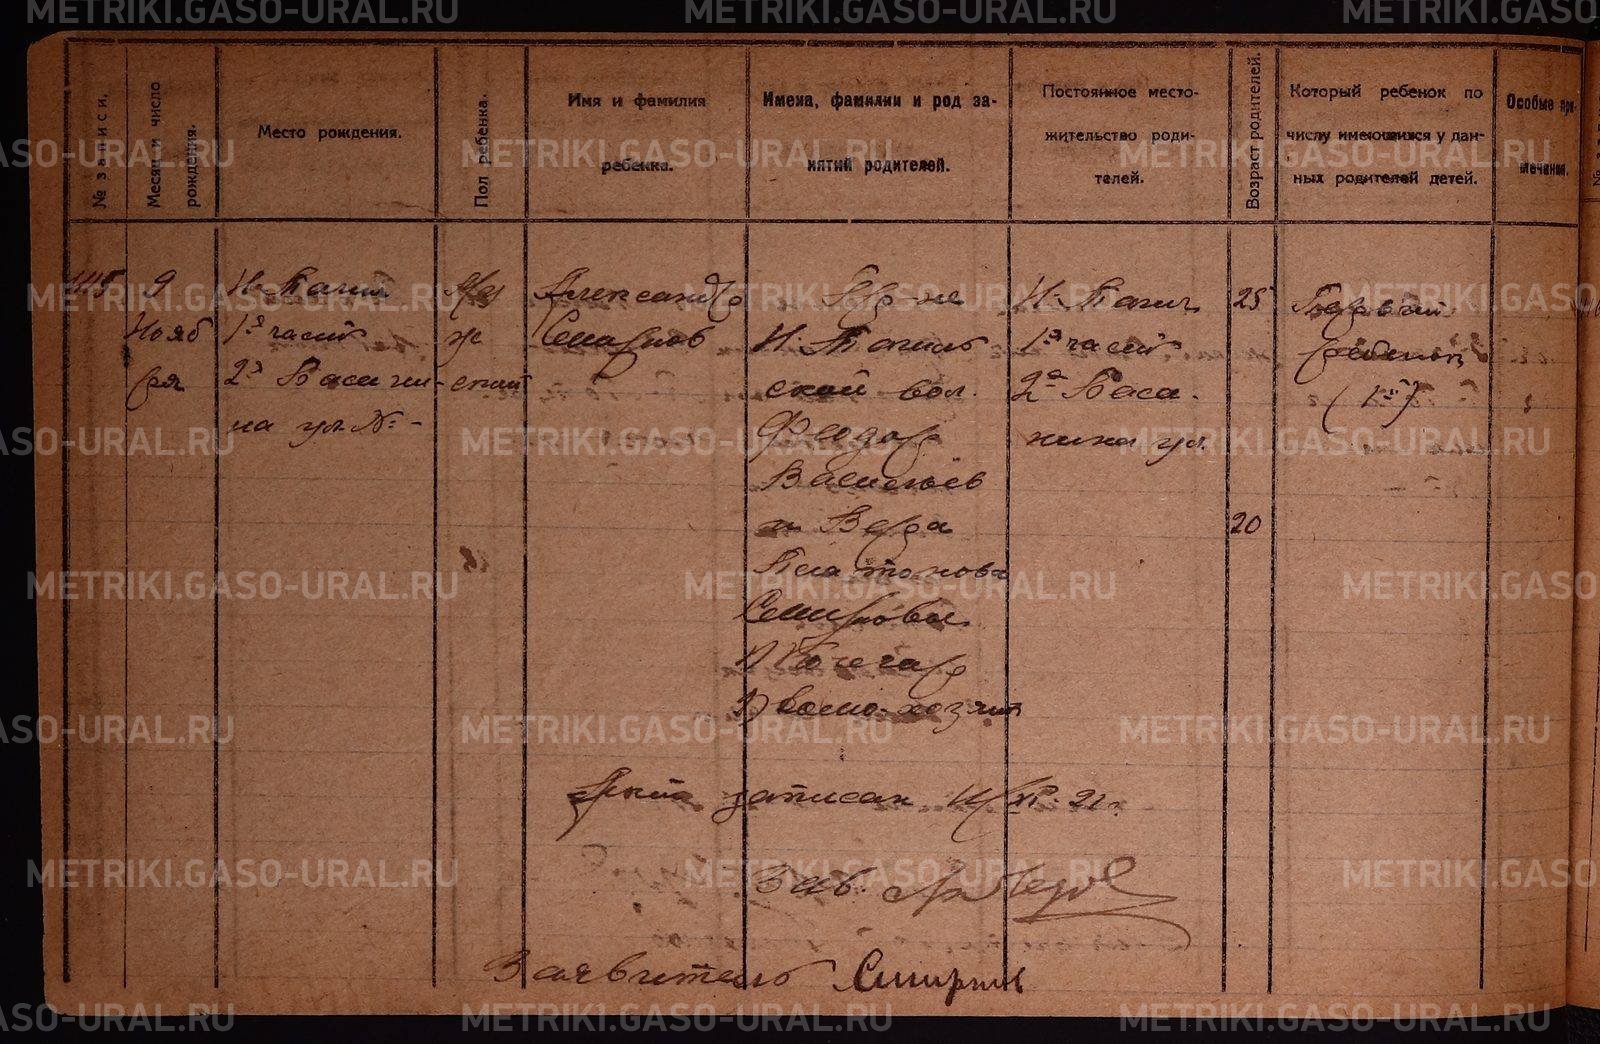 № записи.
Месяц и число
рождения.
Место рождения.
Пол ребенка.
Имя и фамилия
ребенка.
Имена, фамилии и род за-
нятий родителей.
Постоянное место-
жительство роди-
телей.
Возраст родителей.
Который ребенок по
числу имеющихся у дан-
ных родителей детей.
Особые при-
мечания.
9
Нояб
ря
Н-Тагил
1я часть
2я
на ул. № -
Муж
ской
Александр
Смирнов
Гр-не
Н. Тагиль
ской вол.
Федор
Васильев
и Вера
Платонова
Смирновы
Н. Тагил
1я часть
2я
ул.
25
20
Первый
ребенок
(1й)
записан XI-21 г.
Зав.
Заявитель Смирнов
METRIKI.GASO-URAL.RU